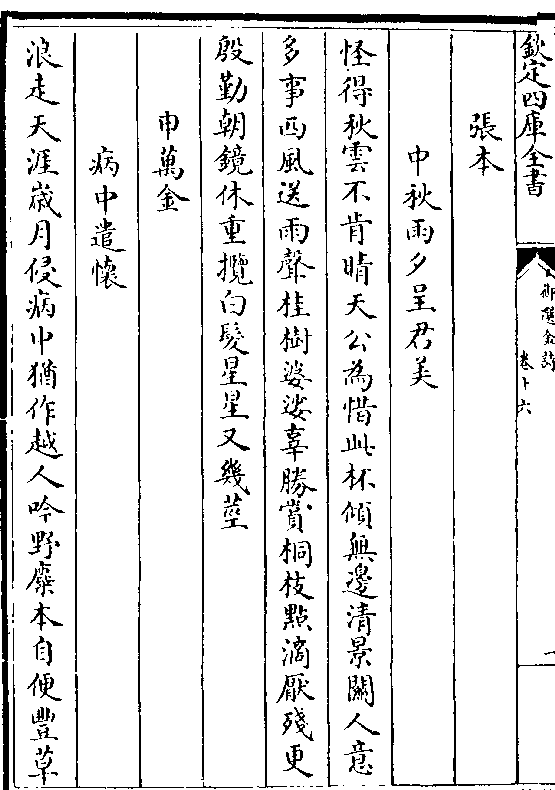 欽定四庫全書
御選金詩
卷十六
張本
中秋雨夕呈君美
怪得秋雲不肯晴天公為惜此杯傾無邊清景關人意
多事西風送雨聲桂樹婆娑辜勝賞桐枝點滴厭殘更
殷勤朝鏡休重攬白髮星星又幾莖
申萬金
病中遣懷
浪走天涯嵗月侵病中猶作越人吟野麋本自便豐草